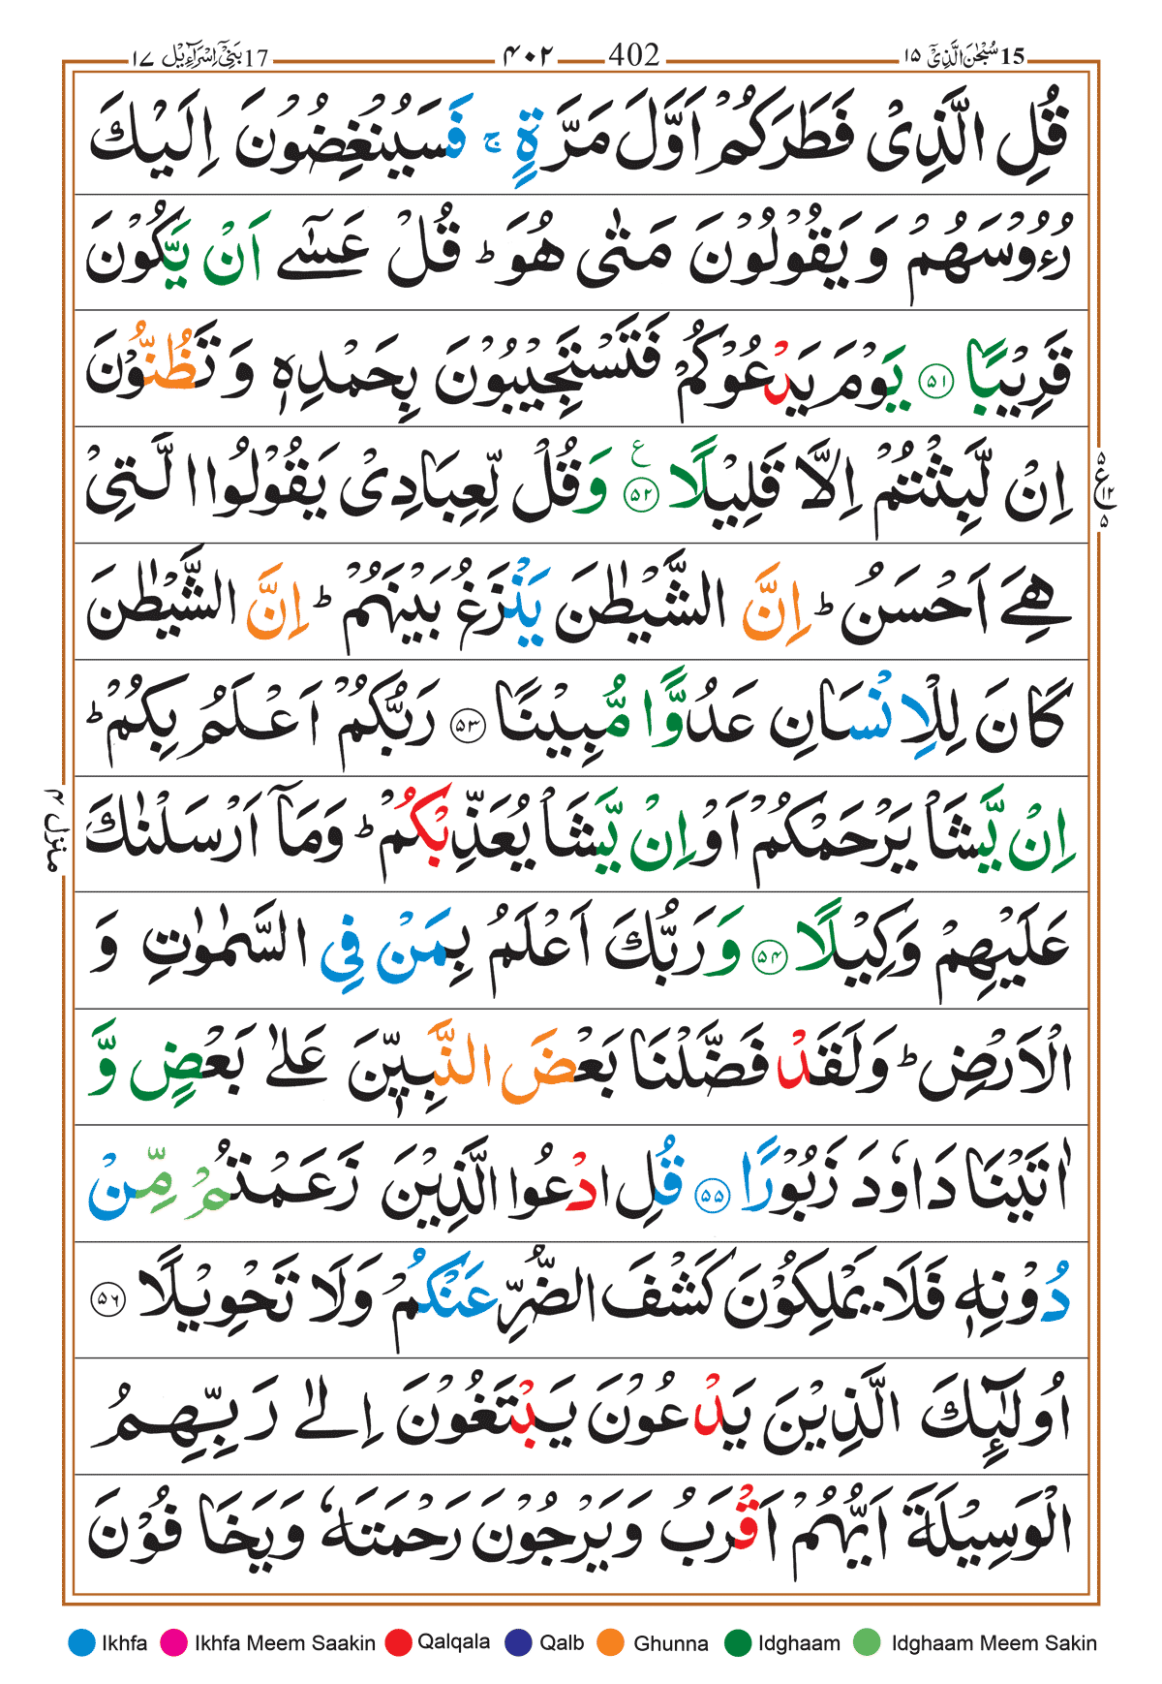 سُبْحٰنَ الَّذِيْۤ ١٥ 15 402 ۴۰۲ بَنِيْۤ اِسْرَآءِيْل ١٧ 17
قُلِ الَّذِيْ فَطَرَكُمْ اَوَّلَ مَرَّةٍ ۚ فَسَيُنْغِضُوْنَ اِلَيْكَ
رُءُوْسَهُمْ وَ يَقُوْلُوْنَ مَتٰى هُوَ ؕ قُلْ عَسٰۤى اَنْ يَّكُوْنَ
قَرِيْبًا ۵۱ يَوْمَ يَدْعُوْكُمْ فَتَسْتَجِيْبُوْنَ بِحَمْدِهٖ وَ تَظُنُّوْنَ
اِنْ لَّبِثْتُمْ اِلَّا قَلِيْلًا ۵۲ ع وَقُلْ لِّعِبَادِيْ يَقُوْلُوا الَّتِيْ
۵ ع ۱۲ ۵
هِيَ اَحْسَنُ ؕ اِنَّ الشَّيْطٰنَ يَنْزَغُ بَيْنَهُمْ ؕ اِنَّ الشَّيْطٰنَ
كَانَ لِلْاِنْسَانِ عَدُوًّا مُّبِيْنًا ۵۳ رَبُّكُمْ اَعْلَمُ بِكُمْ ؕ
اِنْ يَّشَاْ يَرْحَمْكُمْ اَوْ اِنْ يَّشَاْ يُعَذِّبْكُمْ ؕ وَمَاۤ اَرْسَلْنٰكَ
منزل ۴
عَلَيْهِمْ وَكِيْلًا ۵۴ وَرَبُّكَ اَعْلَمُ بِمَنْ فِي السَّمٰوٰتِ وَ
الْاَرْضِ ؕ وَلَقَدْ فَضَّلْنَا بَعْضَ النَّبِيّٖنَ عَلٰى بَعْضٍ وَّ
اٰتَيْنَا دَاوٗدَ زَبُوْرًا ۵۵ قُلِ ادْعُوا الَّذِيْنَ زَعَمْتُمْ مِّنْ
دُوْنِهٖ فَلَا يَمْلِكُوْنَ كَشْفَ الضُّرِّ عَنْكُمْ وَلَا تَحْوِيْلًا ۵۶
اُولٰٓئِكَ الَّذِيْنَ يَدْعُوْنَ يَبْتَغُوْنَ اِلٰى رَبِّهِمُ
الْوَسِيْلَةَ اَيُّهُمْ اَقْرَبُ وَيَرْجُوْنَ رَحْمَتَهٗ وَيَخَافُوْنَ
Ikhfa Ikhfa Meem Saakin Qalqala Qalb Ghunna Idghaam Idghaam Meem Sakin